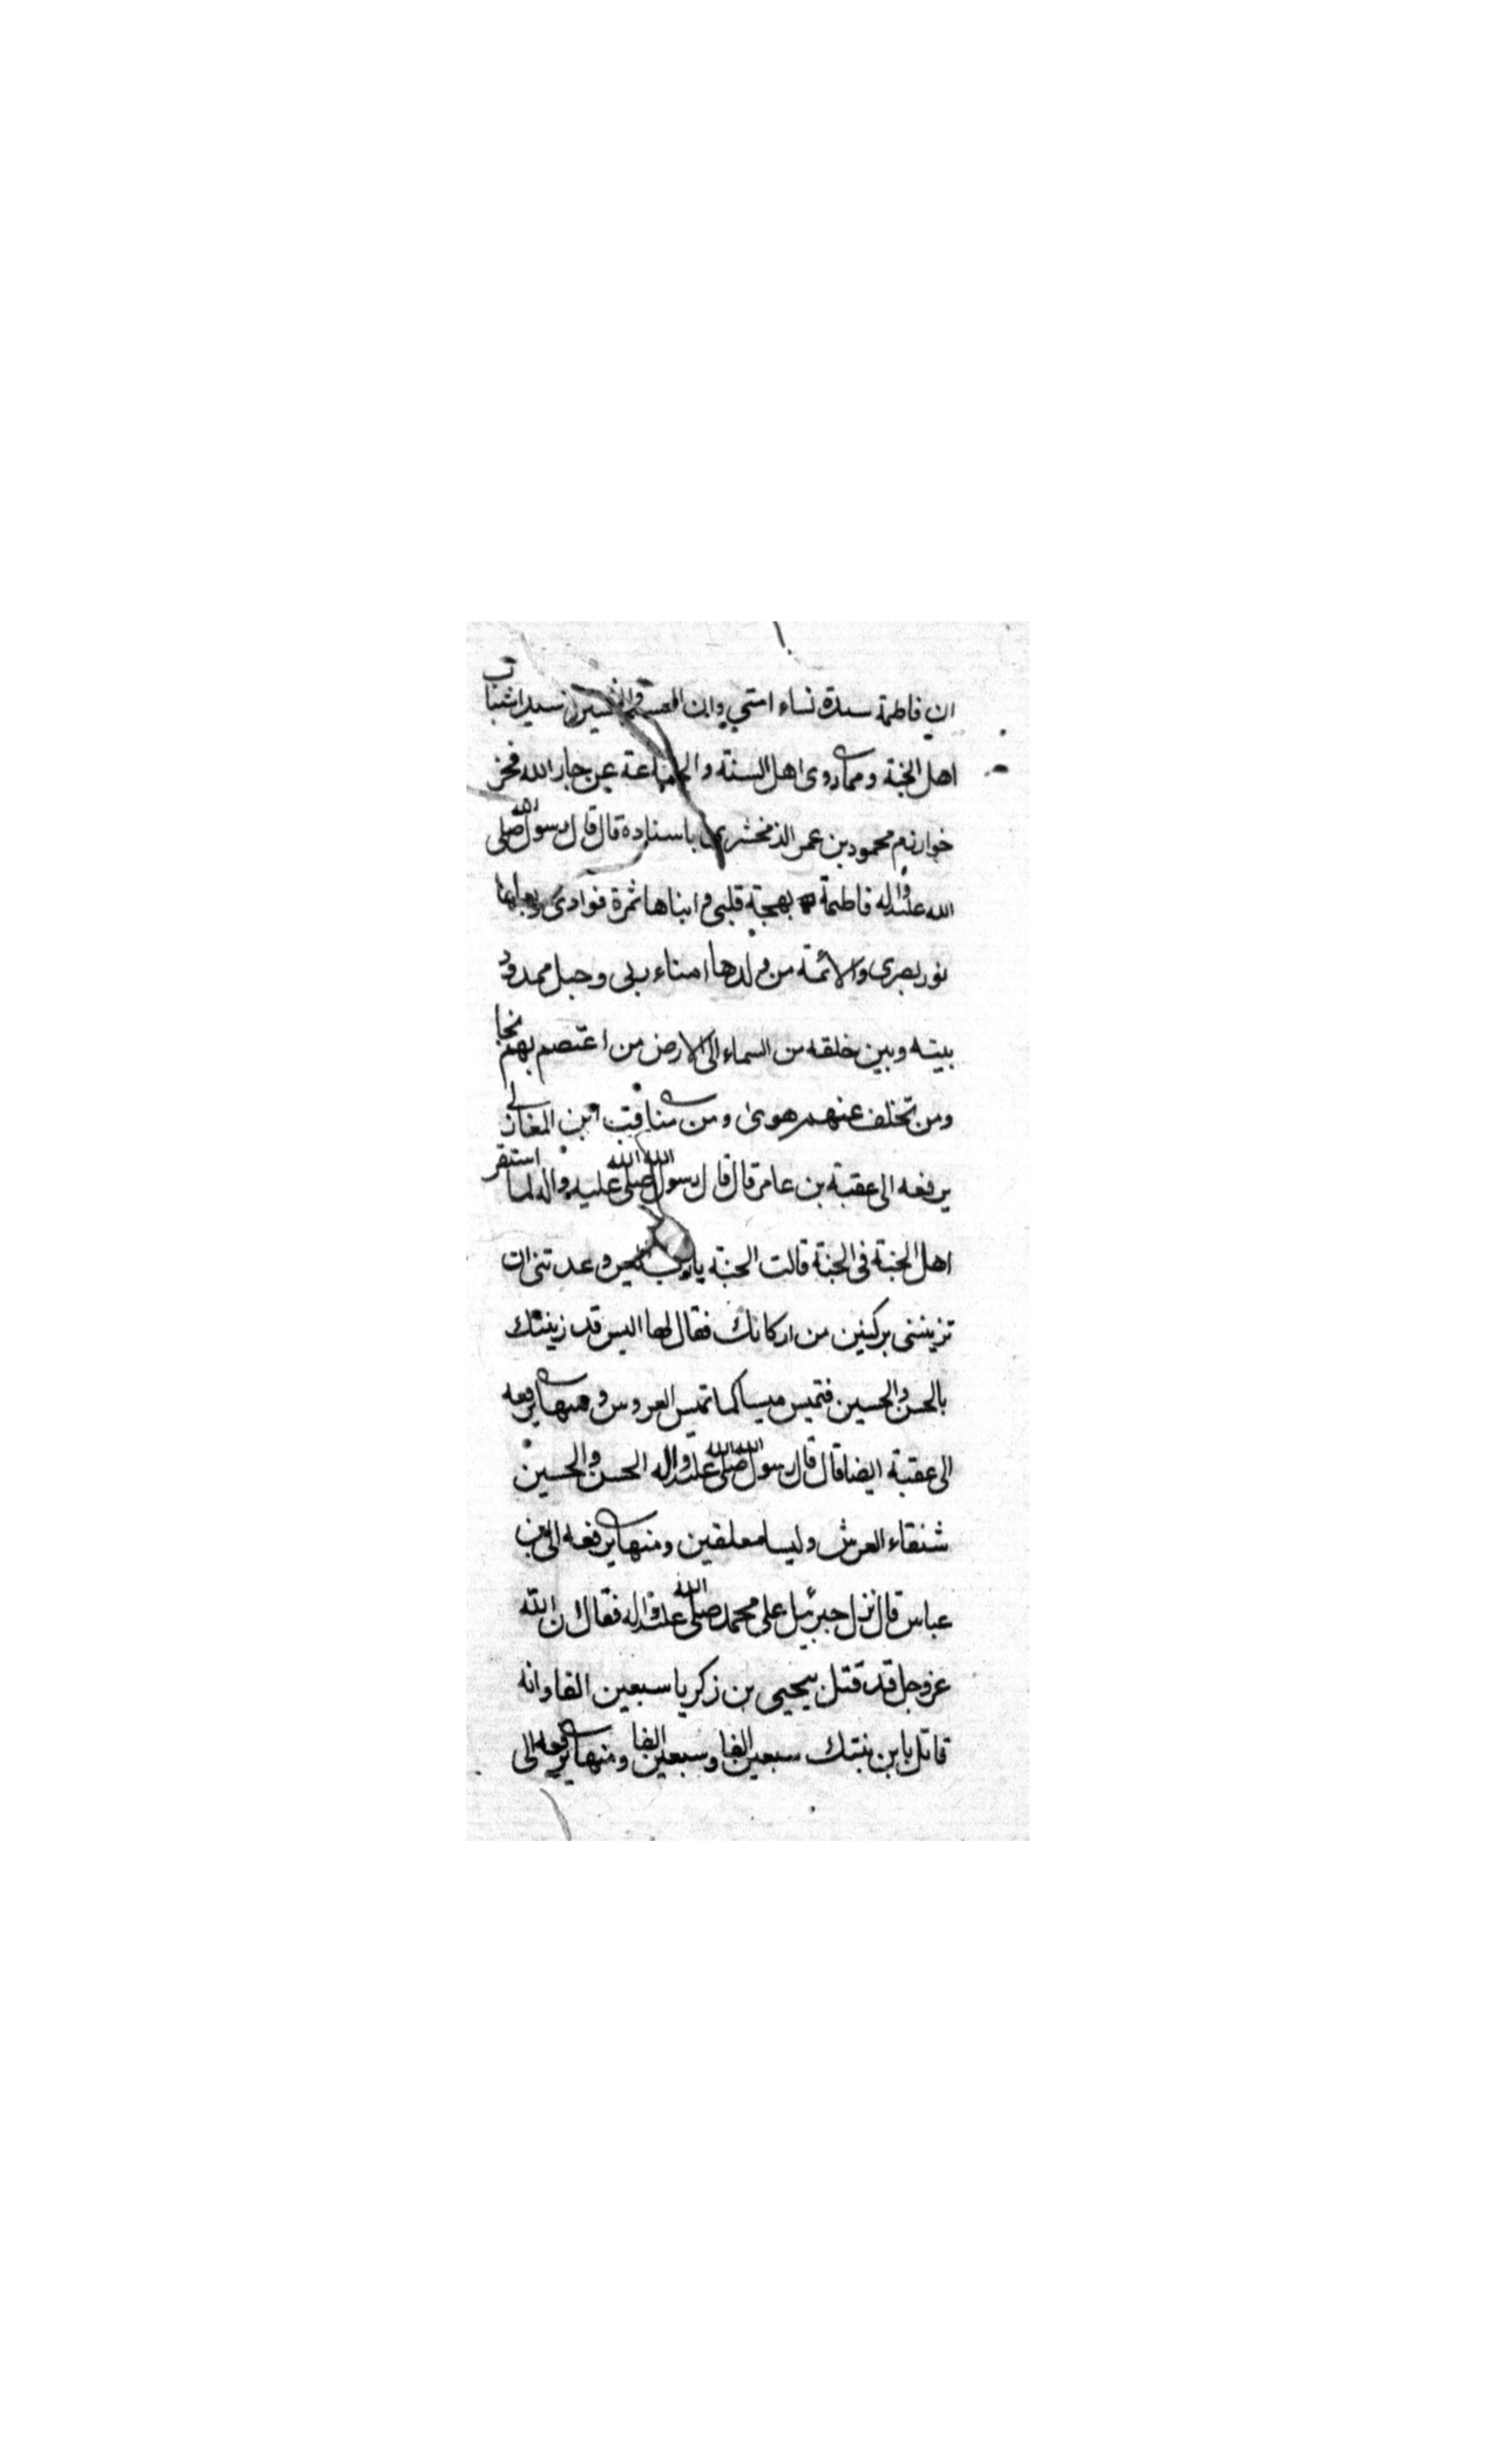 ان فاطمة سيدة نساء امتي وان الحسن والحسين سيدا شباب
اهل الجنة ومما روى اهل السنة والجماعة عن جار الله فخر
خوارزم محمود بن عمر الزمخشري باسناده قال قال رسول الله صلى
الله عليه واله فاطمة بهجة قلبي وابناها ثمرة فوادى وبعلها
نور بصرى والائمة من ولدها امناء ربى وحبل ممدود
بينه وبين خلقه من السماء الى الارض من اعتصم بهم نجا
ومن تخلف عنهم هوى ومن مناقب ابن المغازلي
يرفعه الى عقبة بن عامر قال قال رسول الله صلى الله عليه واله لما استقر
اهل الجنة فى الجنة قالت الجنة يا رب وعدتنى ان
تزيننى بركنين من اركانك فقال لها اليس قد زينتك
بالحسن والحسين فتميس ميسا كما تميس العروس ومنها يرفعه
الى عقبة ايضا قال قال رسول الله صلى الله عليه واله الحسن والحسين
شنقاء العرش وليسا معلقين ومنها يرفعه الى ابن
عباس قال نزل جبرئيل على محمد صلى الله عليه واله فقال ان الله
عزوجل قد قتل بيحيى بن زكريا سبعين الفا وانه
قاتل بابن بنتك سبعين الفا وسبعين الفا ومنها يرفعه الى